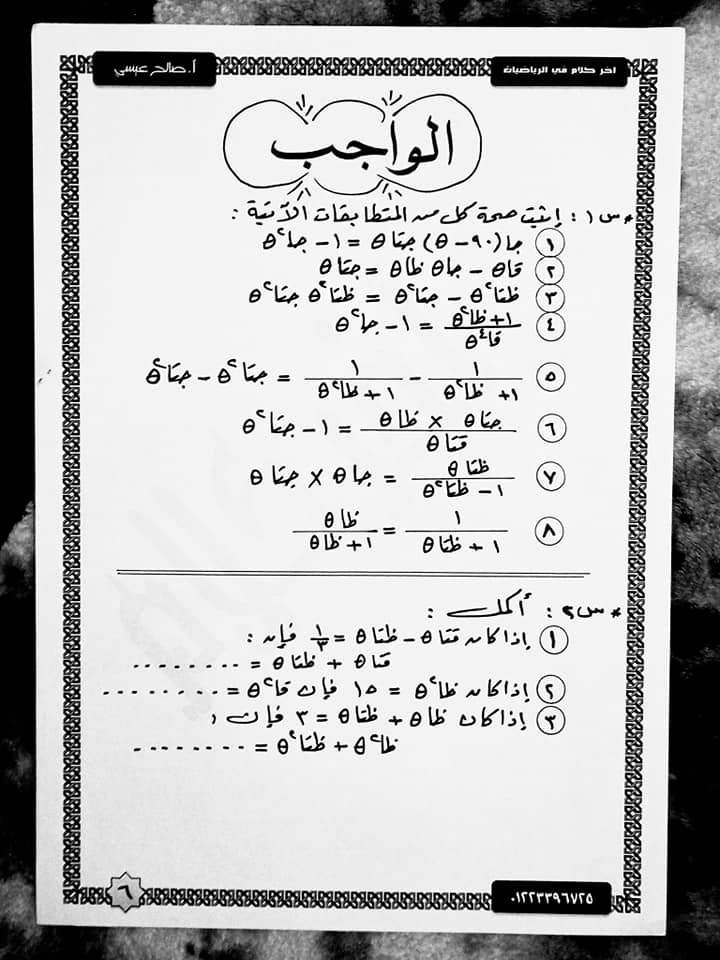 اخر كلام في الرياضيات
أ. صالح عيسي
الواجب
* س١ : إثبت صحة كل من المتطابقات الآتية :
١ جا(٩٠ - θ) جتا θ = ١ - جا٢ θ
٢ قا θ - جا θ ظا θ = جتا θ
٣ ظتا٢ θ - جتا٢ θ = ظتا٢ θ جتا٢ θ
٤ (١ + ظا٢ θ) / (قا٤ θ) = ١ - جا٢ θ
٥ ١ / (١ + ظا٢ θ) - ١ / (١ + ظا٢ θ) = جتا٢ θ - جتا٢ θ
٦ (جتا θ × ظا θ) / (قتا θ) = ١ - جتا٢ θ
٧ (ظتا θ) / (١ - ظتا٢ θ) = جا θ × جتا θ
٨ ١ / (١ + ظتا θ) = (ظا θ) / (١ + ظا θ)
* س٢ : أكمل :
١ إذا كان قتا θ - ظتا θ = ١/٣ فإن :
قتا θ + ظتا θ = ........
٢ إذا كان ظا٢ θ = ١٥ فإن قا٢ θ = ........
٣ إذا كان ظا θ + ظتا θ = ٣ فإن :
ظا٢ θ + ظتا٢ θ = ........
٦
٠١٢٢٣٣٩٦٧٢٥